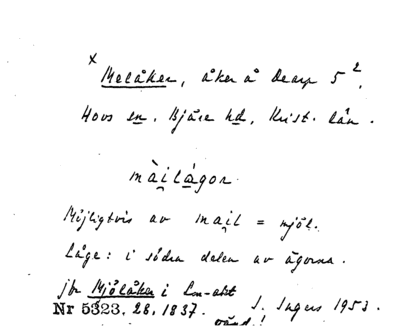 x
Melåker, åker å Dearp 5²,
Hovs sn. Bjäre hd, Krist. län.
mài̯lágor
Möjligtvis av mai̯l = mjöl.
Läge: i södra delen av ägorna.
jfr Mjölåker i Lm-akt
Nr 5323. 28, 1837. I. Ingers 1953.